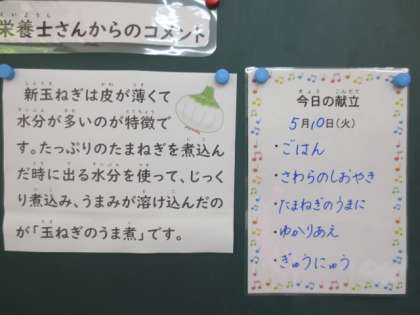 栄養士さんからのコメント
新玉ねぎは皮が薄くて
水分が多いのが特徴で
す。たっぷりのたまねぎを煮込ん
だ時に出る水分を使って、じっく
り煮込み、うまみが溶け込んだの
が「玉ねぎのうま煮」です。
今日の献立
5月10日(火)
・ごはん
・さわらのしおやき
・たまねぎのうまに
・ゆかりあえ
・ぎゅうにゅう